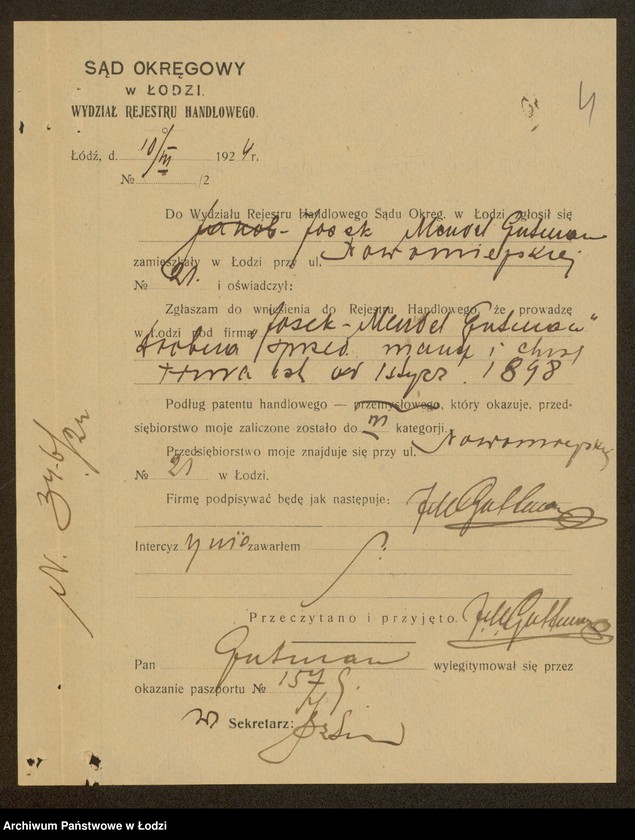 SĄD OKRĘGOWY
w ŁODZI.
WYDZIAŁ REJESTRU HANDLOWEGO.
4
Łódź, d. 10/III 1924 r.
№ /2
Do Wydziału Rejestru Handlowego Sądu Okręg. w Łodzi zgłosił się
Josek Mendel Gutman
zamieszkały w Łodzi przy ul. Nowomiejskiej
№ 21. i oświadczył:
Zgłaszam do wniesienia do Rejestru Handlowego, że prowadzę
w Łodzi pod firmą „Josek-Mendel Gutman“
drobna sprzed. i
od 1 stycz. 1898
Podług patentu handlowego — przemysłowego, który okazuje, przed-
siębiorstwo moje zaliczone zostało do III kategorji.
Przedsiębiorstwo moje znajduje się przy ul. Nowomiejskiej
№ 21 w Łodzi.
Firmę podpisywać będę jak następuje: J.M. Gutman
Intercyz nie zawarłem
Przeczytano i przyjęto. J.M. Gutman
Pan Gutman wylegitymował się przez
okazanie paszportu № 157
w Sekretarz:
Archiwum Państwowe w Łodzi